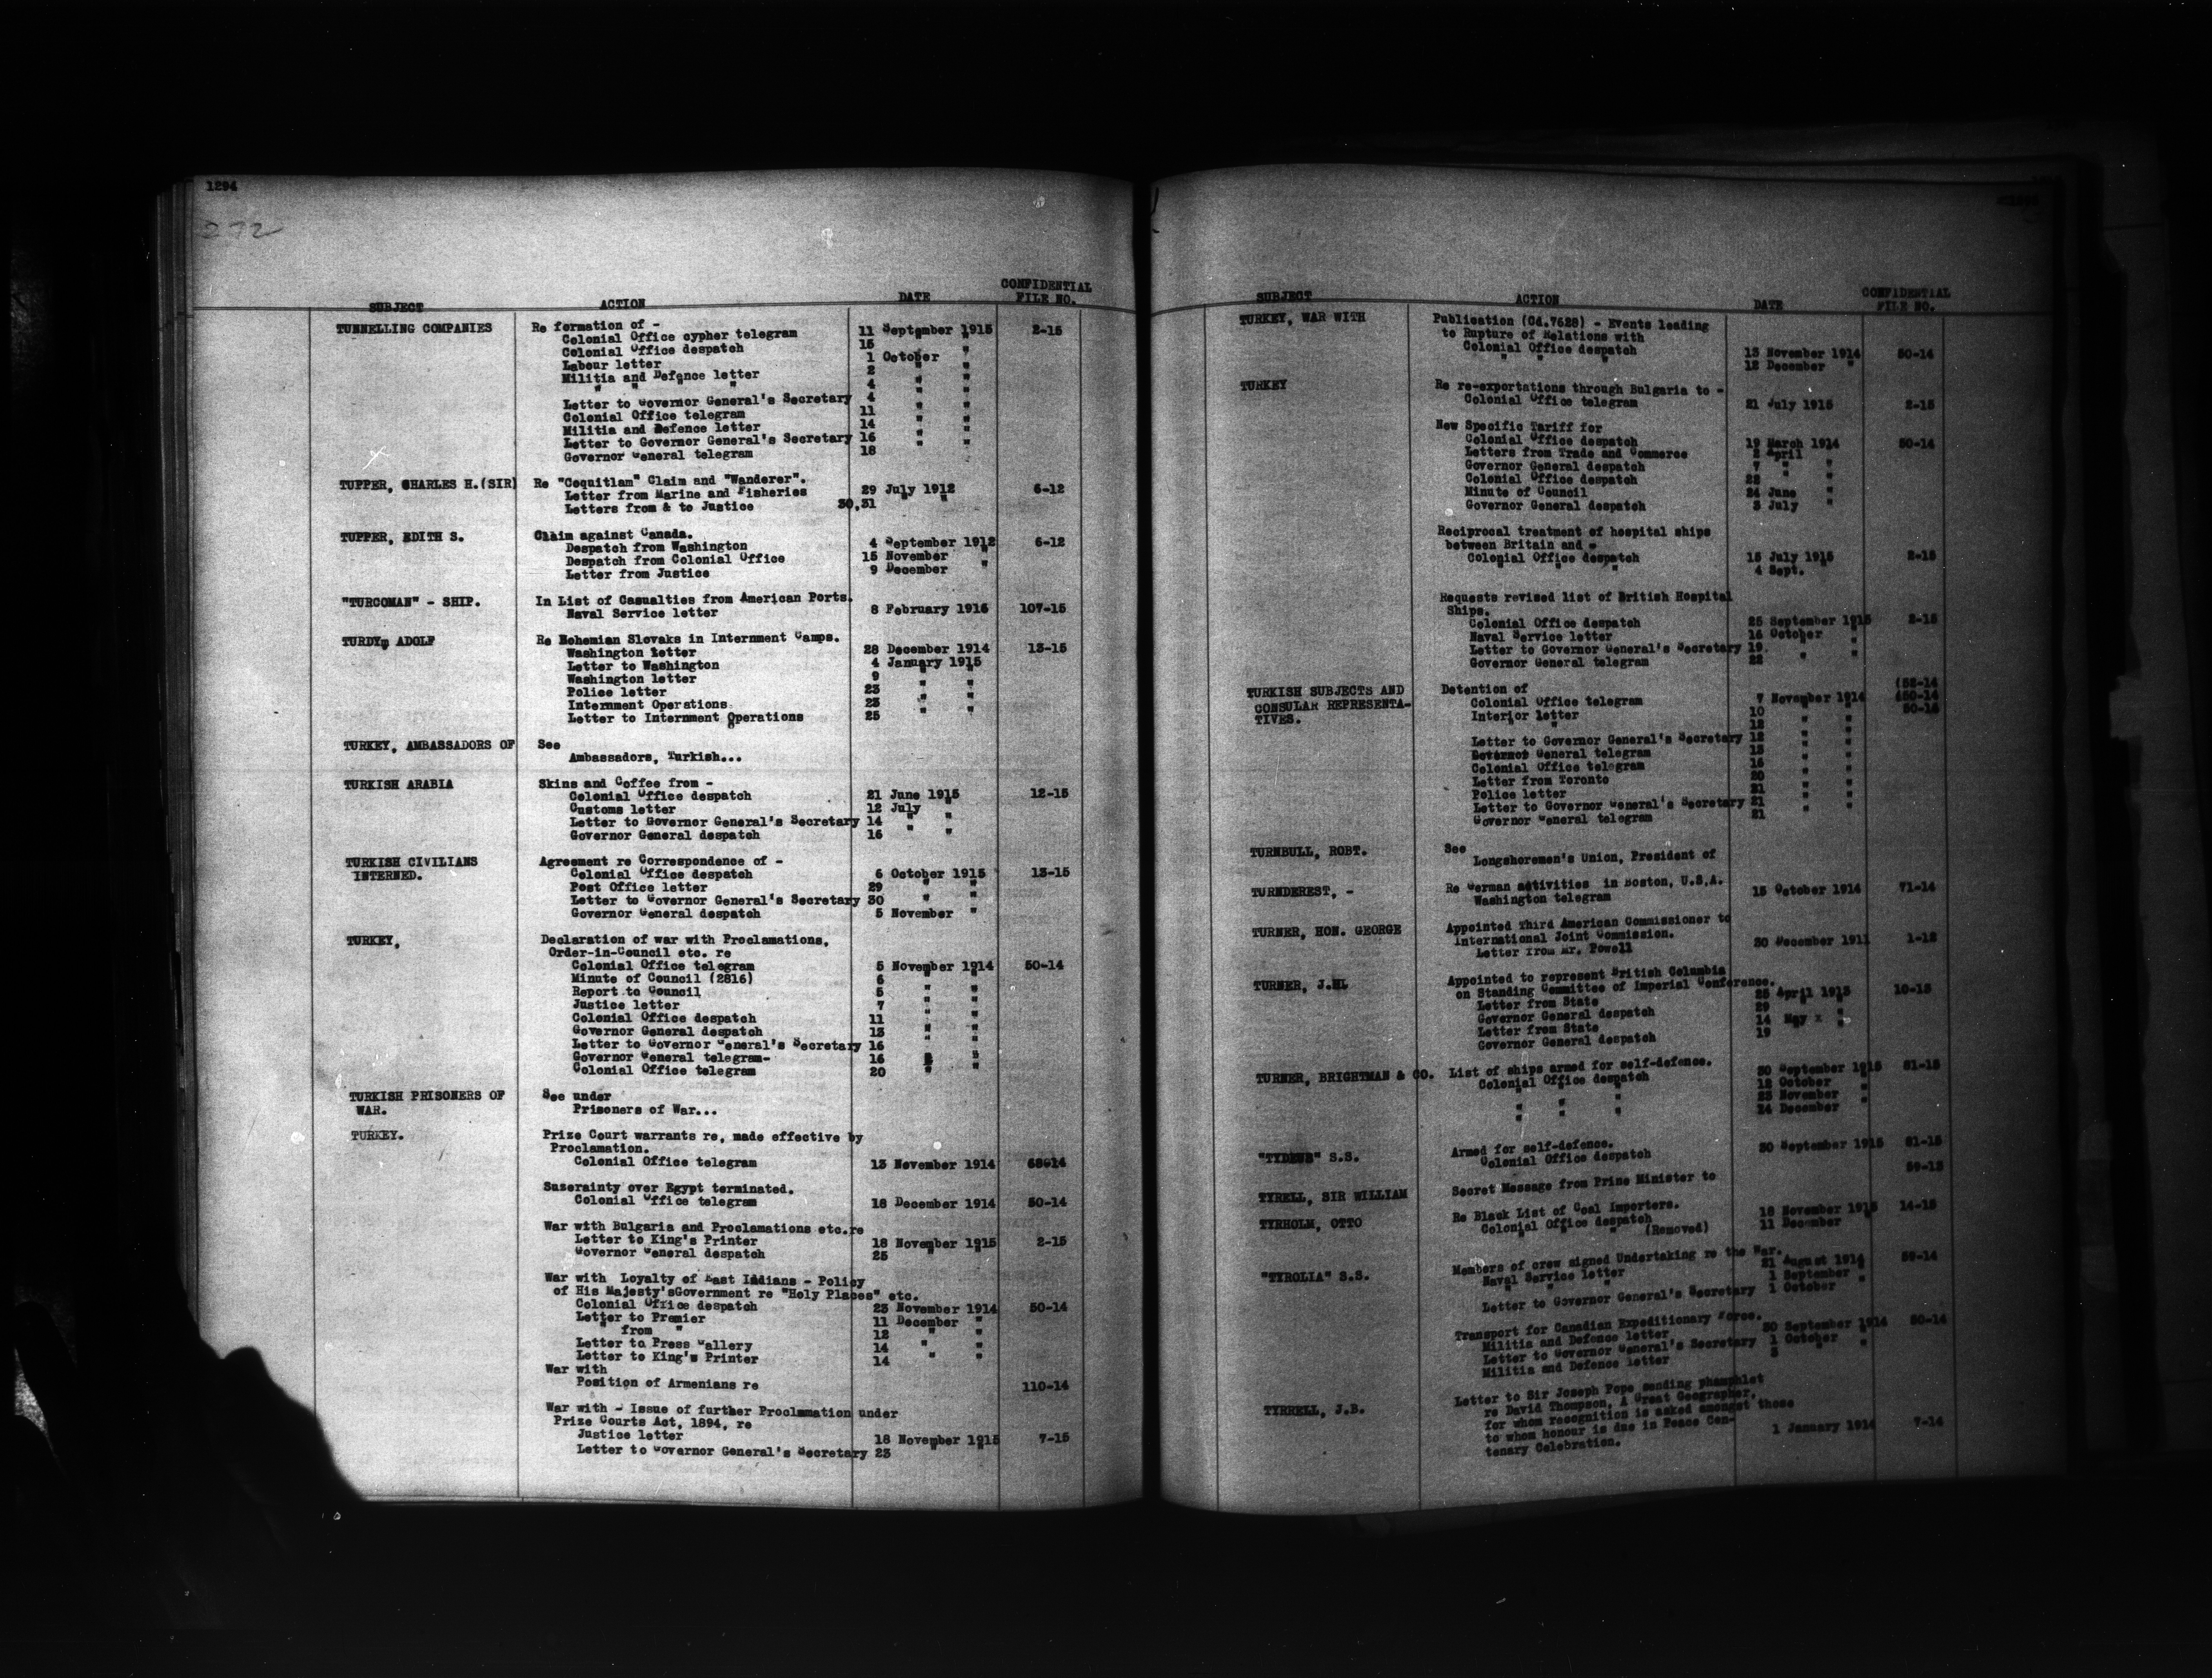 1294
272
SUBJECT ACTION DATE CONFIDENTIAL FILE NO.
TUNNELLING COMPANIES Re formation of -
Colonial Office cypher telegram 11 September 1915 2-15
Colonial Office despatch 15 " "
Labour letter 1 October "
Militia and Defence letter 2 " "
" " " " 4 " "
Letter to Governor General's Secretary 4 " "
Colonial Office telegram 11 " "
Militia and Defence letter 14 " "
Letter to Governor General's Secretary 16 " "
Governor General telegram 18
TUPPER, CHARLES H.(SIR) Re "Coquitlam" Claim and "Wanderer".
Letter from Marine and Fisheries 29 July 1912 6-12
Letters from & to Justice 30,31 " "
TUPPER, EDITH S. Claim against Canada.
Despatch from Washington 4 September 1912 6-12
Despatch from Colonial Office 15 November "
Letter from Justice 9 December "
"TURCOMAN" - SHIP. In List of Casualties from American Ports.
Naval Service letter 8 February 1916 107-15
TURDYm ADOLF Re Bohemian Slovaks in Internment Camps.
Washington letter 28 December 1914 13-15
Letter to Washington 4 January 1915
Washington letter 9 " "
Police letter 23 " "
Internment Operations 23 " "
Letter to Internment Operations 25 " "
TURKEY, AMBASSADORS OF See
Ambassadors, Turkish...
TURKISH ARABIA Skins and Coffee from -
Colonial Office despatch 21 June 1915 12-15
Customs letter 12 July "
Letter to Governor General's Secretary 14 " "
Governor General despatch 16 " "
TURKISH CIVILIANS INTERNED. Agreement re Correspondence of -
Colonial Office despatch 6 October 1915 13-15
Post Office letter 29 " "
Letter to Governor General's Secretary 30 " "
Governor General despatch 5 November "
TURKEY, Declaration of war with Proclamations,
Order-in-Council etc. re
Colonial Office telegram 5 November 1914 50-14
Minute of Council (2816) 6 " "
Report to Council 5 " "
Justice letter 7 " "
Colonial Office despatch 11 " "
Governor General despatch 13 " "
Letter to Governor General's Secretary 16 " "
Governor General telegram- 16 " "
Colonial Office telegram 20 " "
TURKISH PRISONERS OF WAR. See under
Prisoners of War...
TURKEY. Prize Court warrants re, made effective by
Proclamation.
Colonial Office telegram 13 November 1914
Suzerainty over Egypt terminated.
Colonial Office telegram 18 December 1914 50-14
War with Bulgaria and Proclamations etc.re
Letter to King's Printer 18 November 1915 2-15
Governor General despatch 25 " "
War with Loyalty of East Indians - Policy
of His Majesty'sGovernment re "Holy Places" etc.
Colonial Office despatch 23 November 1914 50-14
Letter to Premier 11 December "
" from " 12 " "
Letter to Press Gallery 14 " "
Letter to King's Printer 14 " "
War with
Position of Armenians re 110-14
War with - Issue of further Proclamation under
Prize Courts Act, 1894, re
Justice letter 18 November 1915 7-15
Letter to Governor General's Secretary 23 " "
SUBJECT ACTION DATE CONFIDENTIAL FILE NO.
TURKEY, WAR WITH Publication (Cd.7628) - Events leading
to Rupture of Relations with
Colonial Office despatch 13 November 1914 50-14
" " " 12 December "
TURKEY Re re-exportations through Bulgaria to -
Colonial Office telegram 21 July 1915 2-15
New Specific Tariff for
Colonial Office despatch 19 March 1914 50-14
Letters from Trade and Commerce 2 April "
Governor General despatch 7 " "
Colonial Office despatch 22 " "
Minute of Council 24 June "
Governor General despatch 3 July "
Reciprocal treatment of hospital ships
between Britain and -
Colonial Office despatch 15 July 1915 2-15
" " " 4 Sept. "
Requests revised list of British Hospital
Ships.
Colonial Office despatch 25 September 1915 2-15
Naval Service letter 16 October "
Letter to Governor General's Secretary 19. " "
Governor General telegram 22 " "
TURKISH SUBJECTS AND CONSULAR REPRESENTATIVES. Detention of
Colonial Office telegram 7 November 1914 (50-14
Interior letter 10 " "
" " 12 " "
Letter to Governor General's Secretary 12 " "
Governor General telegram 13 " "
Colonial Office telegram 16 " "
Letter from Toronto 20 " "
Police letter 21 " "
Letter to Governor General's Secretary 21 " "
Governor General telegram 21
TURNBULL, ROBT. See
Longshoremen's Union, President of
TURNDEREST, - Re German activities in Boston, U.S.A.
Washington telegram 15 October 1914 71-14
TURNER, HON. GEORGE Appointed Third American Commissioner to
International Joint Commission.
Letter from Mr. Powell 30 December 1911 1-12
TURNER, J.H. Appointed to represent British Columbia
on Standing Committee of Imperial Conference.
Letter from State 25 April 1913 10-13
Governor General despatch 29 " "
Letter from State 14 May "
Governor General despatch 19
TURNER, BRIGHTMAN & CO. List of ships armed for self-defence.
Colonial Office despatch 30 September 1915 81-15
" " " 12 October "
" " " 23 November "
" " " 24 December
S.S. Armed for self-defence.
Colonial Office despatch 30 September 1915 81-15
TYRELL, SIR WILLIAM Secret Message from Prime Minister to 59-13
TYRHOLM, OTTO Re Black List of Coal Importers.
Colonial Office despatch 18 November 1915 14-15
" " " (Removed) 11 December "
"TYROLIA" S.S. Members of crew signed Undertaking re the War.
Naval Service letter 21 August 1914 59-14
" " " 1 September "
Letter to Governor General's Secretary 1 October "
Transport for Canadian Expeditionary Force.
Militia and Defence letter 30 September 1914 50-14
Letter to Governor General's Secretary 1 October "
Militia and Defence letter 3 " "
TYRRELL, J.B. Letter to Sir Joseph Pope sending phamphlet
re David Thompson, A Great Geographer,
for whom recognition is asked amongst those
to whom honour is due in Peace Cen-
tenary Celebration. 1 January 1914 7-14